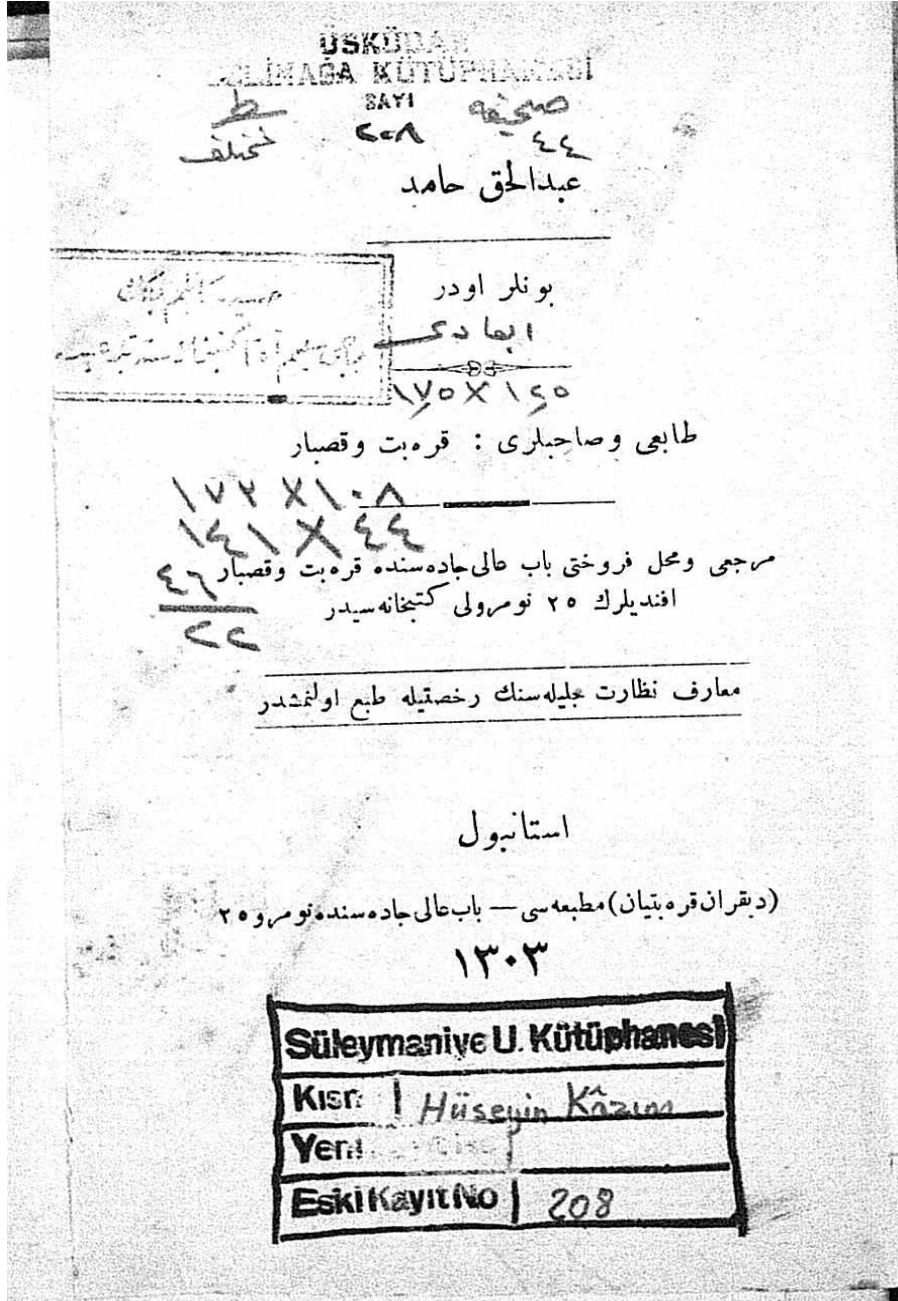 ÜSKÜDAR
SELİMAĞA KÜTÜPHANESİ
SAYI
٢٠٨
صحيفه
٤٤
خط
مختلف
عبدالحق حامد
بونلر اودر
ابعادى
١٧٥ X ١٤٥
طابعى وصاحبلرى : قره‌بت وقصبار
١٧٢ X ١٠٨
١٤١ X ٤٤
مرجعى ومحل فروختى باب عالى جاده‌سنده قره‌بت وقصبار
٤٦
افنديلرك ٢٥ نومرولى كتبخانه‌سيدر
٢٢
معارف نظارت جليله‌سنك رخصتيله طبع اولنمشدر
استانبول
(ديقران قره‌بتيان) مطبعه‌سى — باب عالى جاده‌سنده نومرو ٢٥
١٣٠٣
Süleymaniye U. Kütüphanesi
Kısmı Hüseyin Kâzım
Yeni
Eski Kayıt No 208